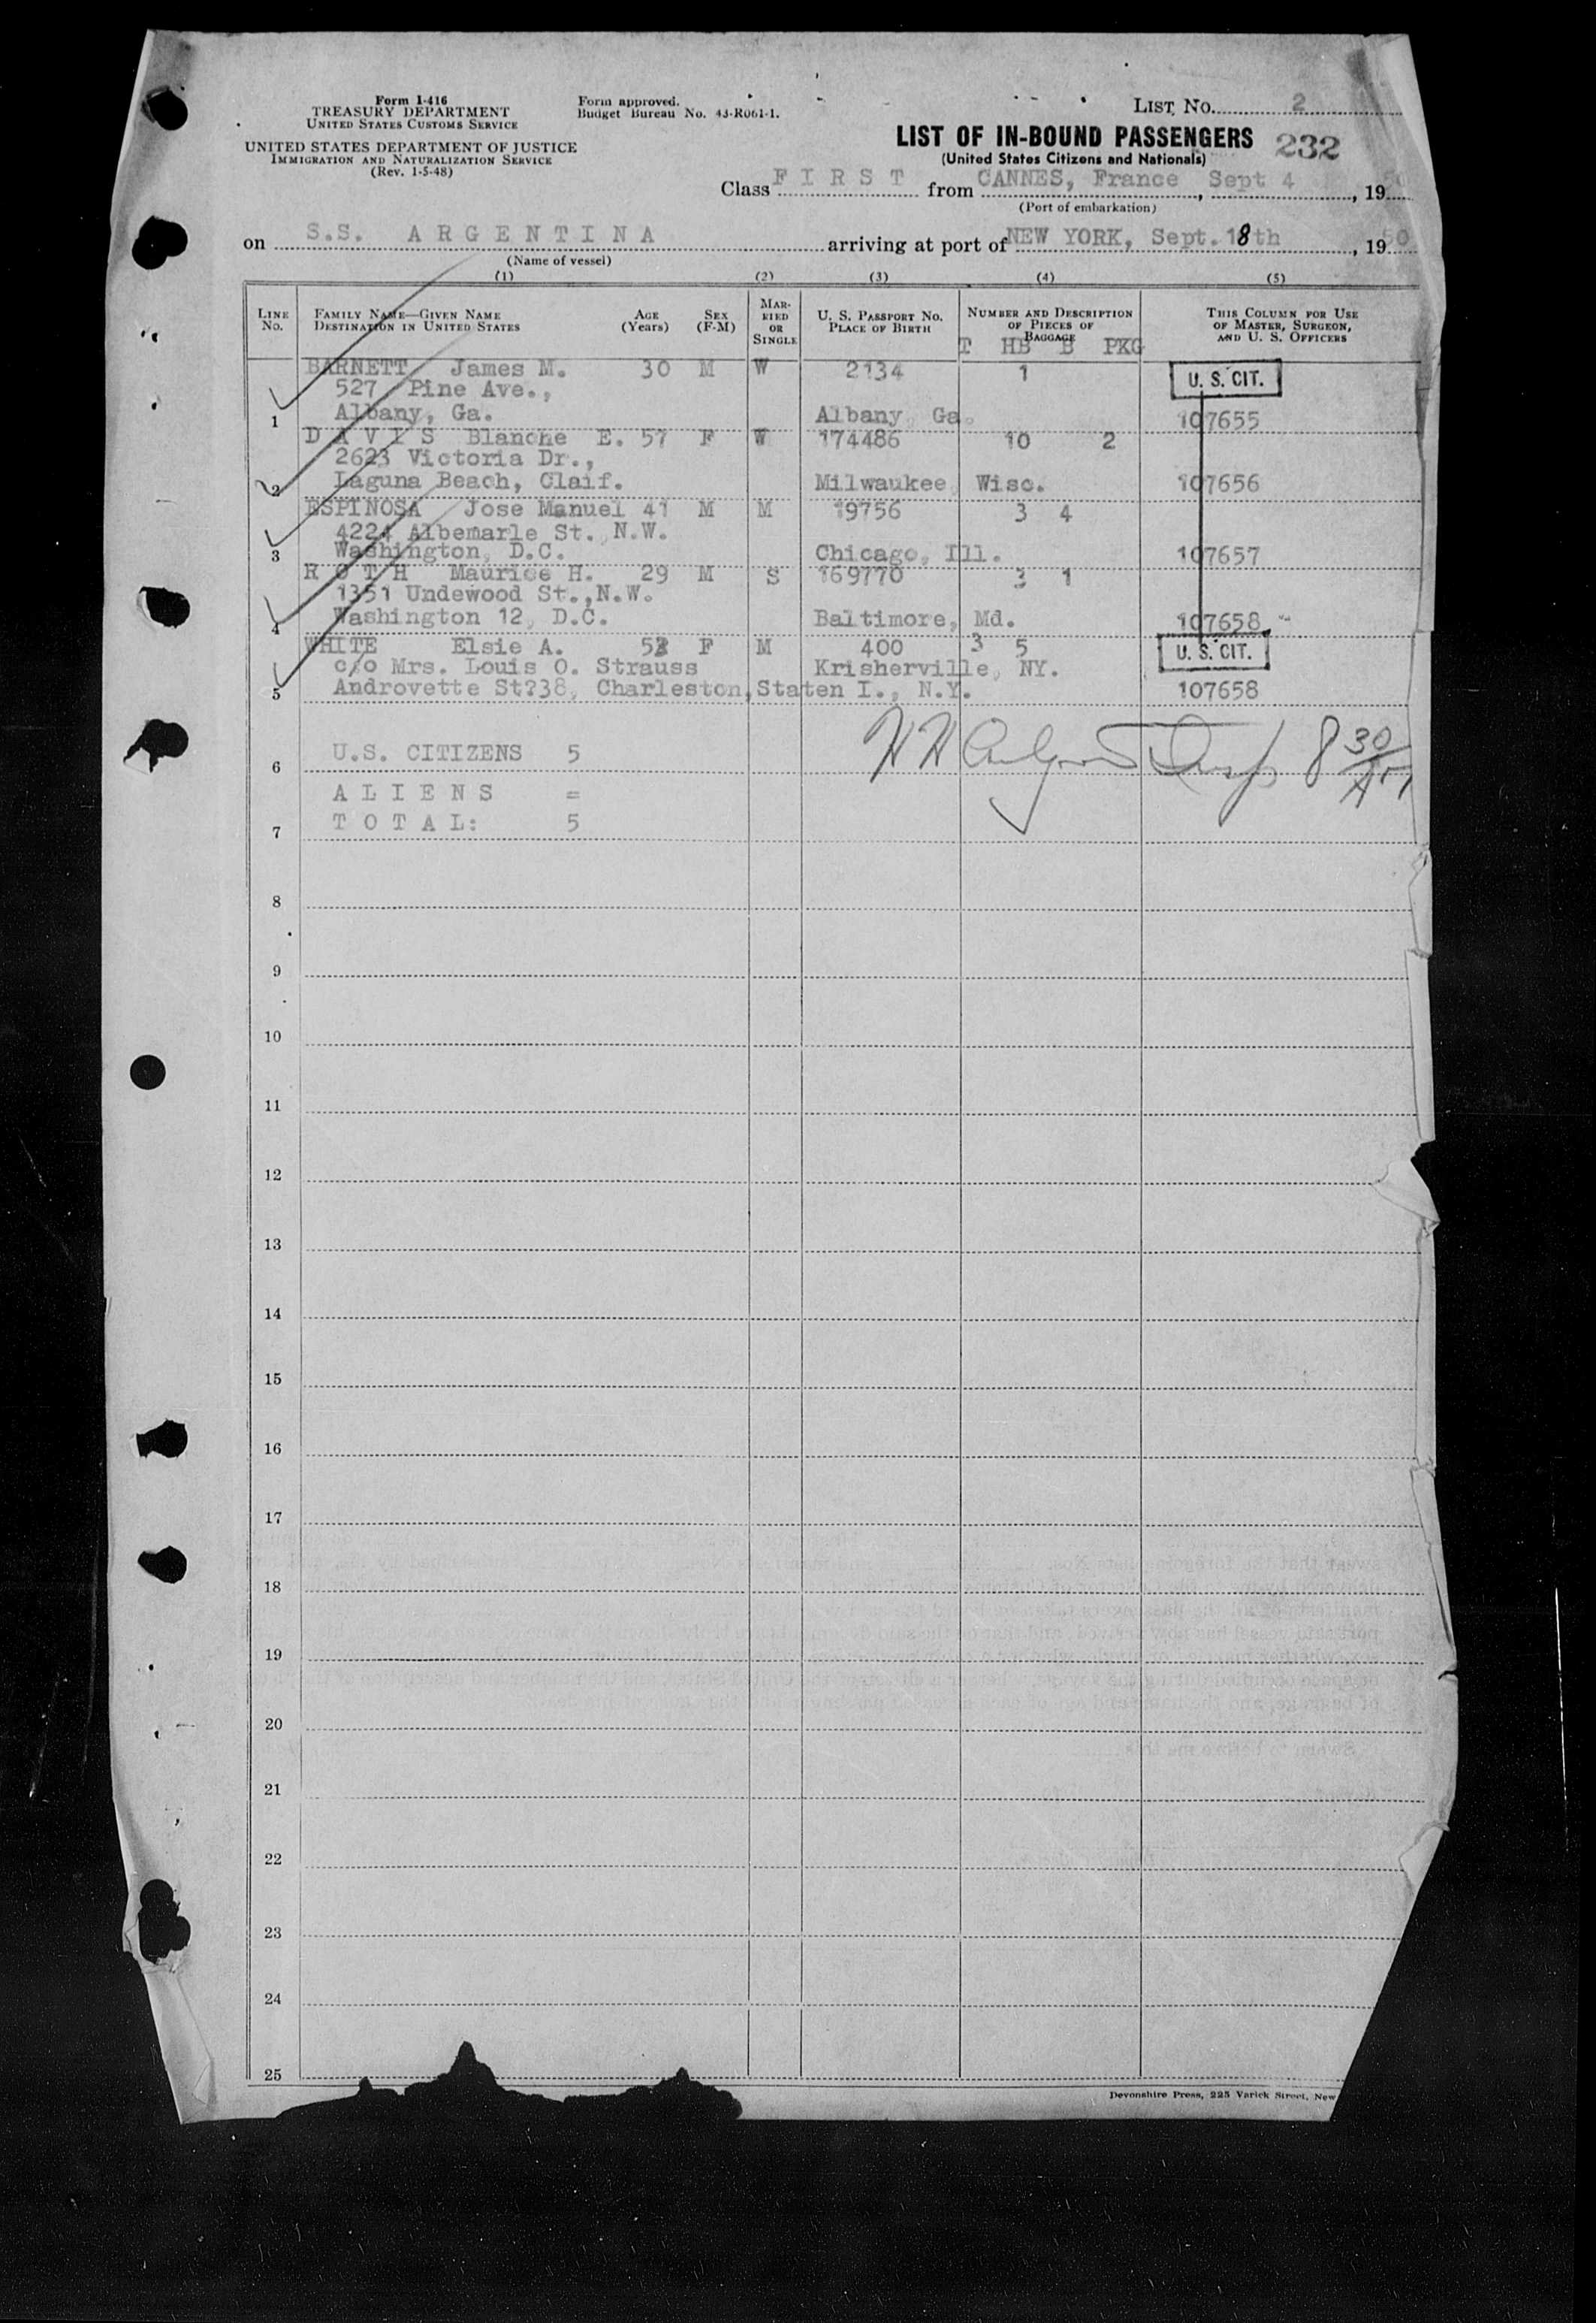 Form I-416
TREASURY DEPARTMENT
UNITED STATES CUSTOMS SERVICE
UNITED STATES DEPARTMENT OF JUSTICE
IMMIGRATION AND NATURALIZATION SERVICE
(Rev. 1-5-48)
Form approved.
Budget Bureau No. 43-R061-1.
LIST No. 2
LIST OF IN-BOUND PASSENGERS 232
(United States Citizens and Nationals)
Class F I R S T from CANNES, France, Sept 4, 1950
(Port of embarkation)
on S.S. A R G E N T I N A arriving at port of NEW YORK, Sept. 18th, 1950
(Name of vessel)
(1) (2) (3) (4) (5)
LINE No. FAMILY NAME—GIVEN NAME DESTINATION IN UNITED STATES AGE (Years) SEX (F-M) MARRIED OR SINGLE U. S. PASSPORT NO. PLACE OF BIRTH NUMBER AND DESCRIPTION OF PIECES OF BAGGAGE THIS COLUMN FOR USE OF MASTER, SURGEON, AND U. S. OFFICERS
T HB B PKG
BARNETT, James M. 30 M W 2134 1 U. S. CIT.
527 Pine Ave.,
1 Albany, Ga. Albany, Ga. 107655
D A V I S Blanche E. 57 F W 174486 10 2
2623 Victoria Dr.,
2 Laguna Beach, Claif. Milwaukee, Wisc. 107656
ESPINOSA Jose Manuel 41 M M 19756 3 4
4224 Albemarle St., N.W.
3 Washington, D.C. Chicago, Ill. 107657
R O T H Maurice H. 29 M S 169770 3 1
1351 Undewood St.,N.W.
4 Washington 12, D.C. Baltimore, Md. 107658
WHITE Elsie A. F M 400 3 5 U. S. CIT.
c/o Mrs. Louis O. Strauss Krisherville, NY.
5 Androvette St?38, Charleston,Staten I., N.Y. 107658
6 U.S. CITIZENS 5
A L I E N S =
7 T O T A L: 5
8 30 AM
8
9
10
11
12
13
14
15
16
17
18
19
20
21
22
23
24
25
Devonshire Press, 225 Varick Street, New